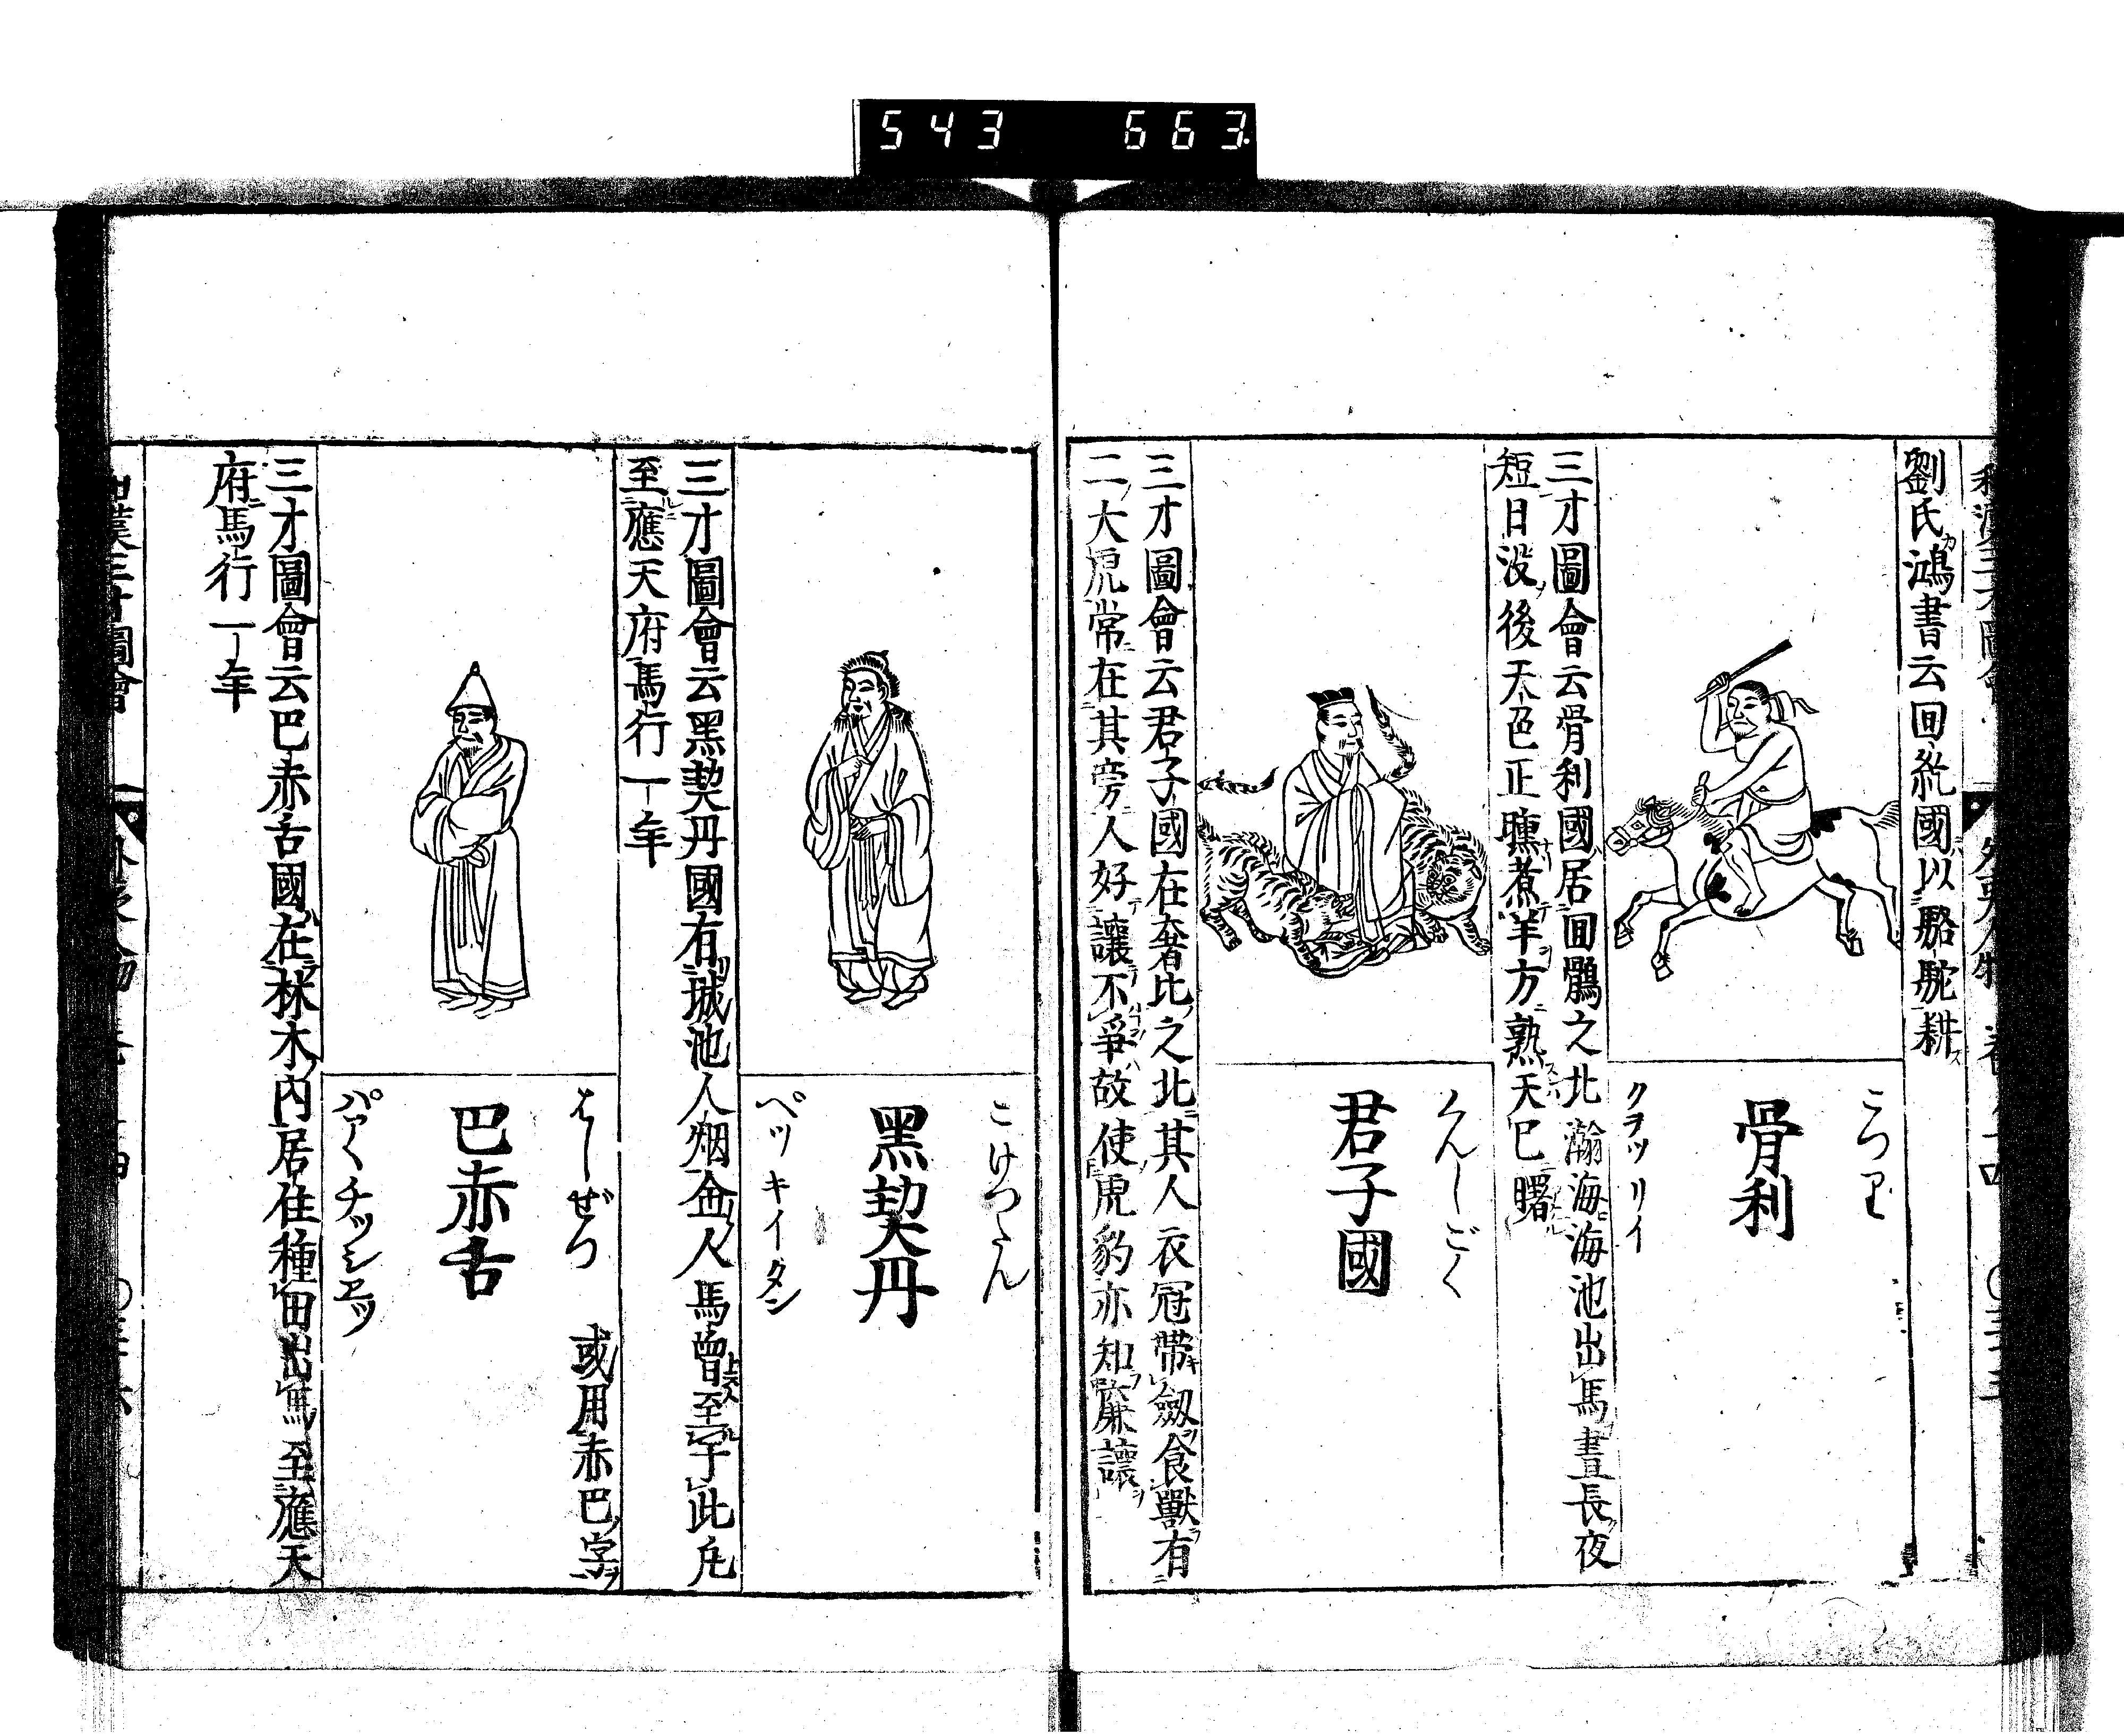 543 663
劉氏鴻書云回紇國以駱駝耕ス
こつり
骨利
クヲツリイ
三才圖會云骨利國居回鶻之北瀚海海池出馬晝長夜
短日没後天色正曛煮羊方熟天已曙
くんしごく
君子國
三才圖會云君子國在奢比之北其人衣冠帶劔食獸有
二大虎常在其旁人好讓不爭故使虎豹亦知廉讓
こけつたん
黑契丹
ペツキイタン
三才圖會云黑契丹國有城池人烟金人馬曾至于此凡
至應天府馬行一年
はしぜつ 或用赤巴字
巴赤舌
パアくチツシエツ
三才圖會云巴赤舌國在林木内居住種田出馬至應天
府馬行一年